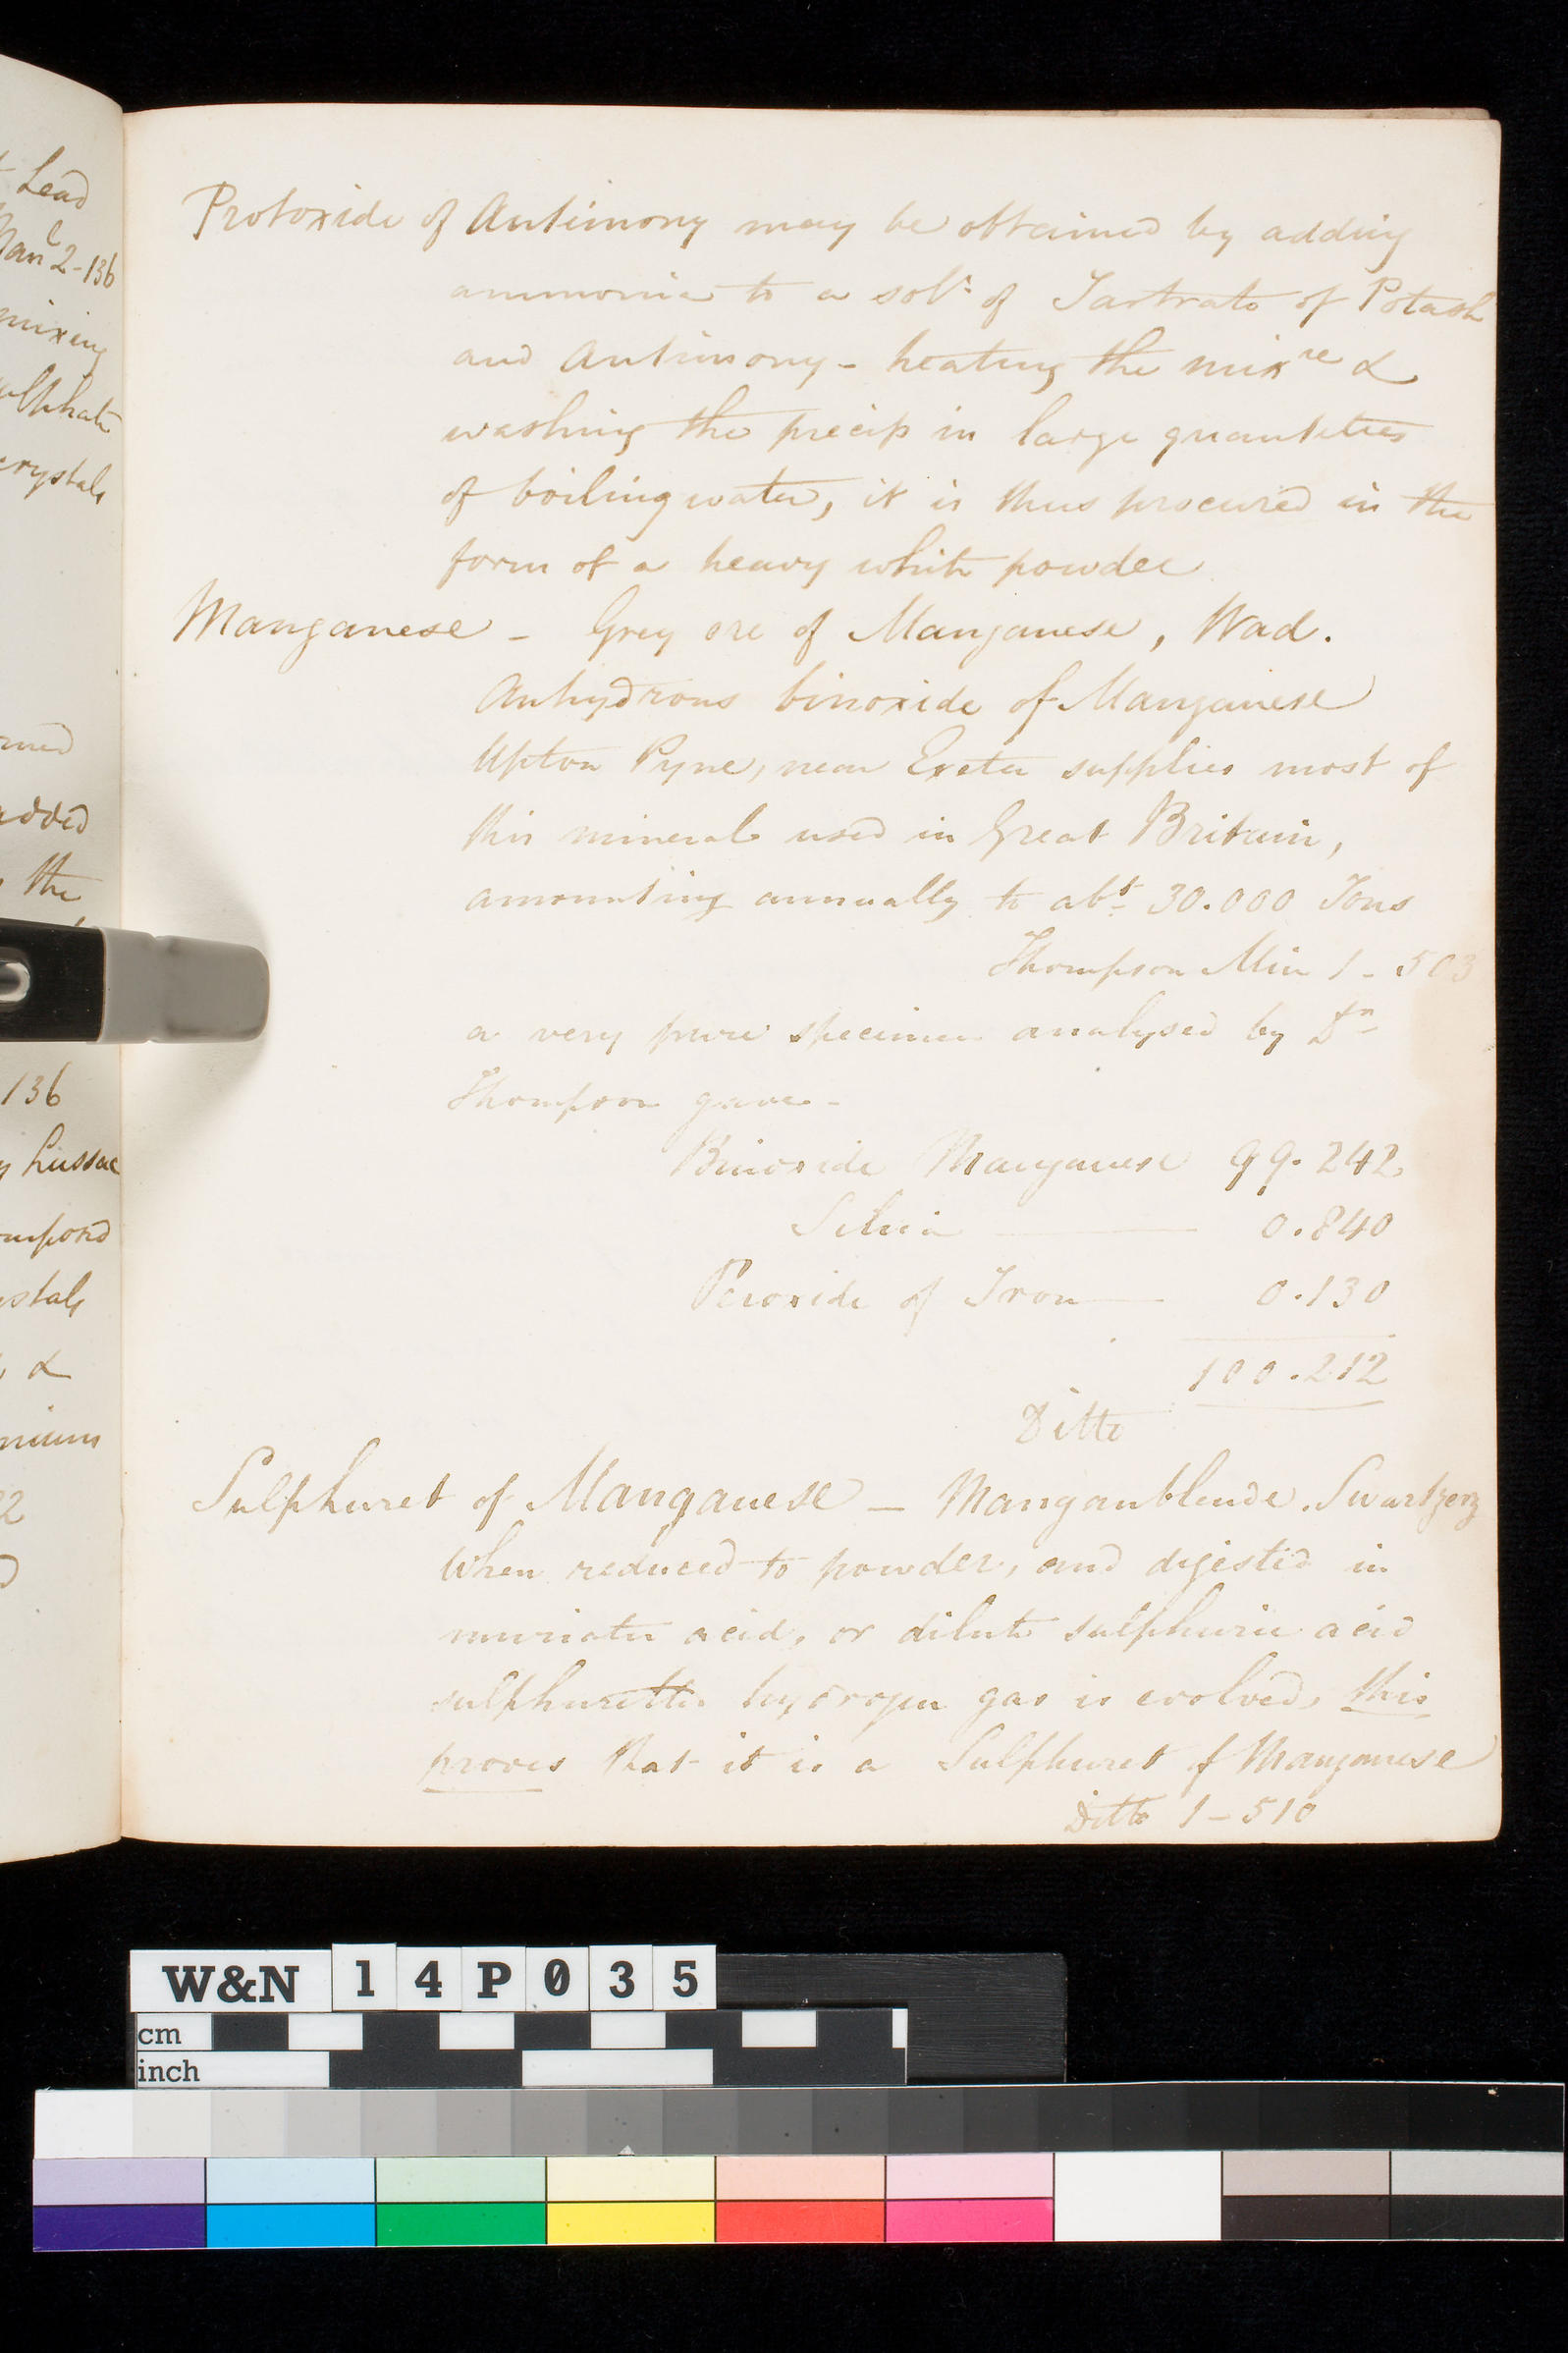 Lead
Man^l 2-136
mixing
crystals
added
the
136
Lussac
&
Protoxide of Antimony may be obtained by adding
ammonia to a sol^n of Tartrate of Potash
and Antimony - heating the mix^re &
washing the precip in large quantities
of boiling water, it is thus procured in the
form of a heavy white powder
Manganese - Grey ore of Manganese, Wad.
Anhydrous binoxide of Manganese
Upton Pyne, near Exeter supplies most of
this mineral used in Great Britain,
amounting annually to ab^t 30.000 Tons
Thompson Min 1 - 503
a very pure specimen analysed by D^r
Thompson gave -
Binoxide Manganese 99.242
Silica — 0.840
Peroxide of Iron — 0.130
100.212
Ditto
Sulphuret of Manganese - Manganblende. Swartzerz
When reduced to powder, and digested in
muriatic acid, or dilute sulphuric acid
sulphuretted hydrogen gas is evolved, this
proves that it is a Sulphuret of Manganese
Ditto 1 - 510
W&N 14P035
cm
inch